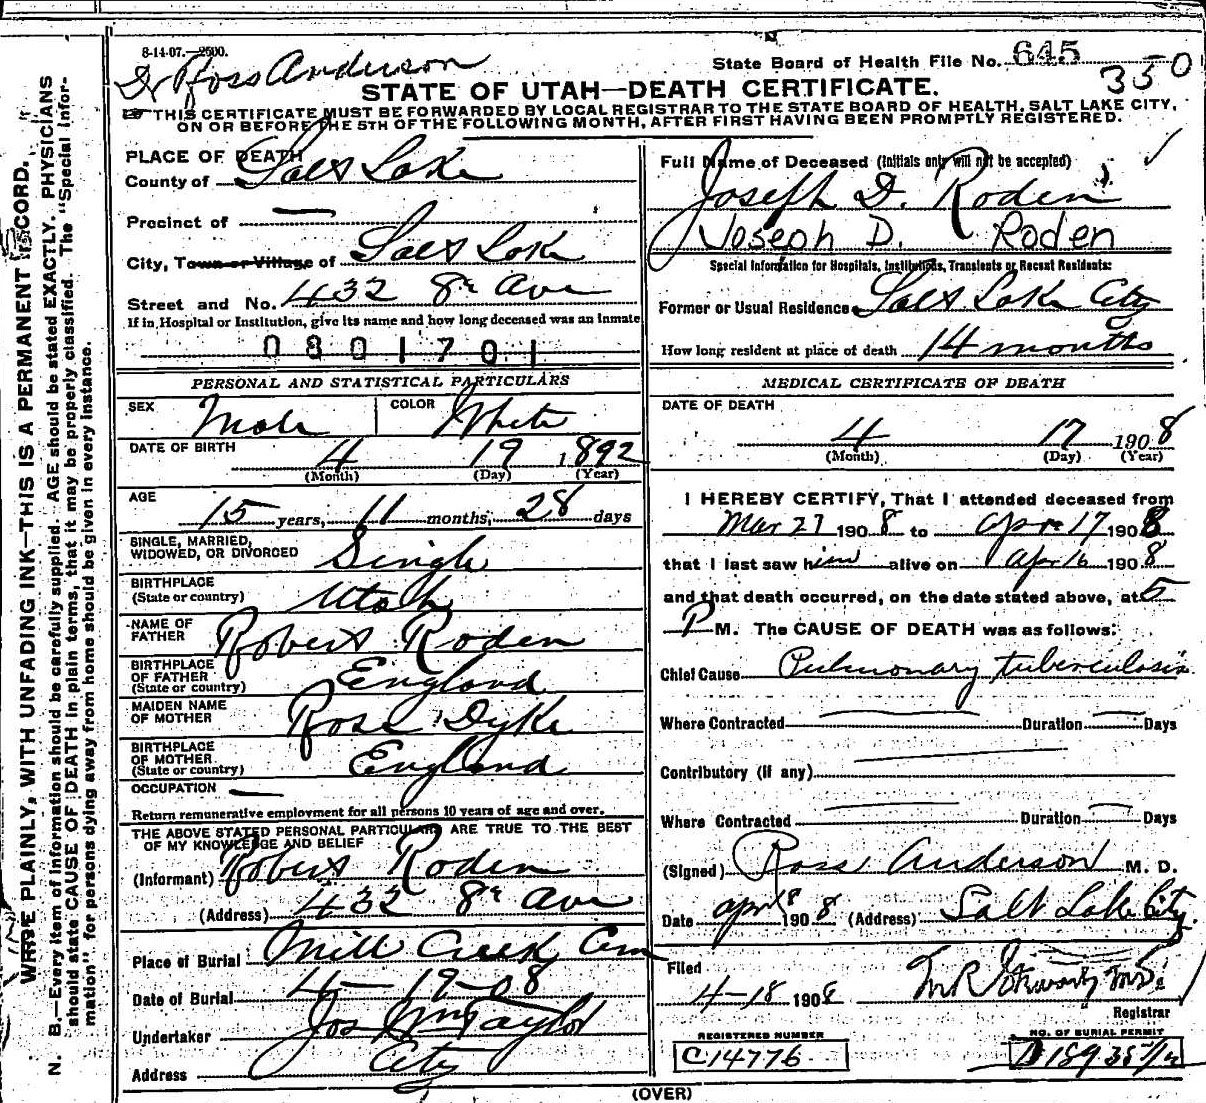 8-14-07.—2500.
Dr Ross Anderson
State Board of Health File No. 645
350
STATE OF UTAH—DEATH CERTIFICATE.
THIS CERTIFICATE MUST BE FORWARDED BY LOCAL REGISTRAR TO THE STATE BOARD OF HEALTH, SALT LAKE CITY,
ON OR BEFORE THE 5TH OF THE FOLLOWING MONTH, AFTER FIRST HAVING BEEN PROMPTLY REGISTERED.
PLACE OF DEATH
County of Salt Lake
Precinct of —
City, Town or Village of Salt Lake
Street and No. 432 8th Ave
If in Hospital or Institution, give its name and how long deceased was an inmate
0801701
Full Name of Deceased (Initials only will not be accepted)
Joseph D. Roden
Joseph D. Roden
Special Information for Hospitals, Institutions, Transients or Recent Residents:
Former or Usual Residence Salt Lake City
How long resident at place of death 14 months
PERSONAL AND STATISTICAL PARTICULARS
SEX Male COLOR White
DATE OF BIRTH 4 19 1892
(Month) (Day) (Year)
AGE 15 years, 11 months, 28 days
SINGLE, MARRIED,
WIDOWED, OR DIVORCED Single
BIRTHPLACE
(State or country) Utah
NAME OF
FATHER Robert Roden
BIRTHPLACE
OF FATHER
(State or country) England
MAIDEN NAME
OF MOTHER Rose Dyke
BIRTHPLACE
OF MOTHER
(State or country) England
OCCUPATION —
Return remunerative employment for all persons 10 years of age and over.
THE ABOVE STATED PERSONAL PARTICULARS ARE TRUE TO THE BEST
OF MY KNOWLEDGE AND BELIEF
(Informant) Robert Roden
(Address) 432 8th Ave
Place of Burial Mill Creek Cem
Date of Burial 4-19-08
Undertaker Jos Wm Taylor
Address City
MEDICAL CERTIFICATE OF DEATH
DATE OF DEATH
4 17 1908
(Month) (Day) (Year)
I HEREBY CERTIFY, That I attended deceased from
Mar 27 1908 to Apr 17 1908
that I last saw him alive on Apr 16 1908
and that death occurred, on the date stated above, at 5
P M. The CAUSE OF DEATH was as follows:
Chief Cause Pulmonary tuberculosis
Where Contracted — Duration — Days
Contributory (if any) —
Where Contracted — Duration — Days
(Signed) Ross Anderson M. D.
Date Apr 18 1908 (Address) Salt Lake City.
Filed
4-18 1908
Registrar
REGISTERED NUMBER
C14776
NO. OF BURIAL PERMIT
(OVER)
WRITE PLAINLY, WITH UNFADING INK—THIS IS A PERMANENT RECORD.
N. B.—Every item of information should be carefully supplied. AGE should be stated EXACTLY. PHYSICIANS
should state CAUSE OF DEATH in plain terms, that it may be properly classified. The "Special Infor-
mation" for persons dying away from home should be given in every instance.